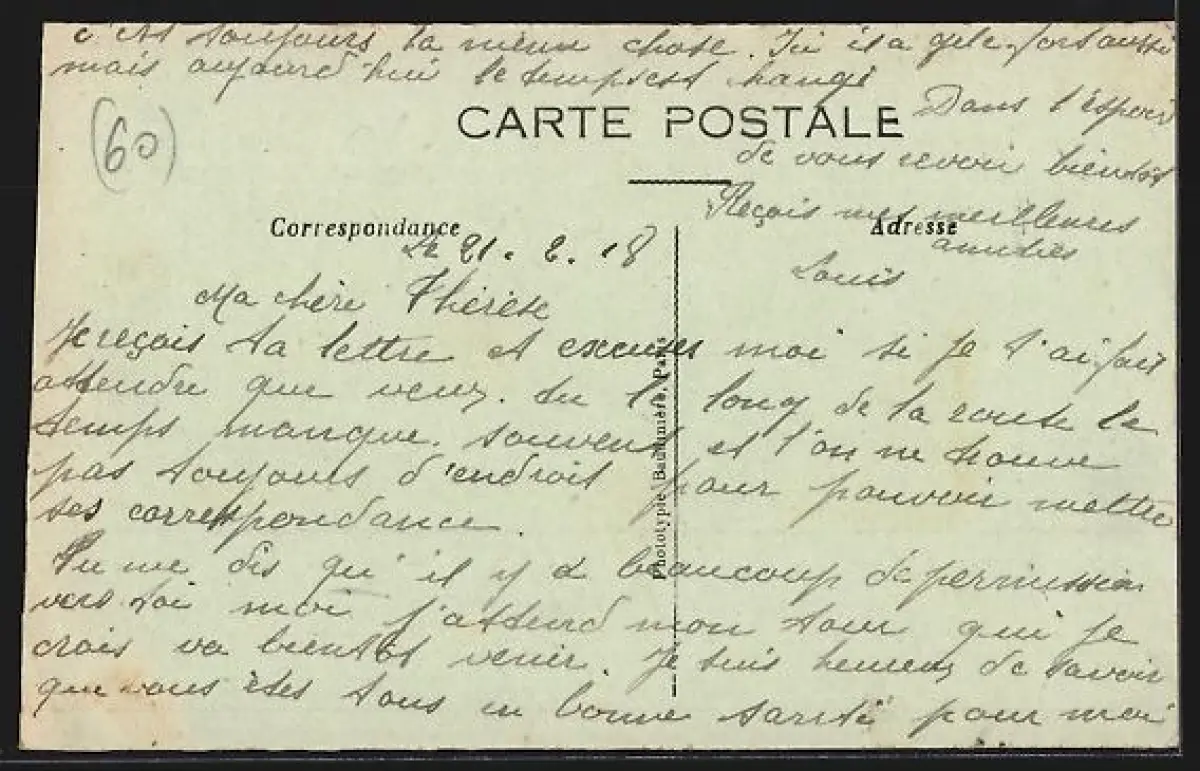 c'est toujours la meme chose. Ici il a gelé fort aussi
mais aujourd'hui le temps est changé
Dans l'espoir
(60)
CARTE POSTALE
de vous revoir bientôt
Reçois mes meilleures
amitiés
Louis
Correspondance
Adresse
Le 21. 2. 18
Ma chère Thérèse
Je reçois ta lettre et excuses moi si je t'ai fait
attendre que veux. tu le long de la route le
temps manque. souvent et l'on ne trouve
pas toujours d'endroit pour pouvoir mettre
ses correspondance.
Tu me dis qu'il y a beaucoup de permission
vers toi moi j'attend mon tour qui je
crois va bientot venir. Je suis heureux de savoir
que vous êtes tous en bonne santé pour moi
Phototypie Baudinière, Paris